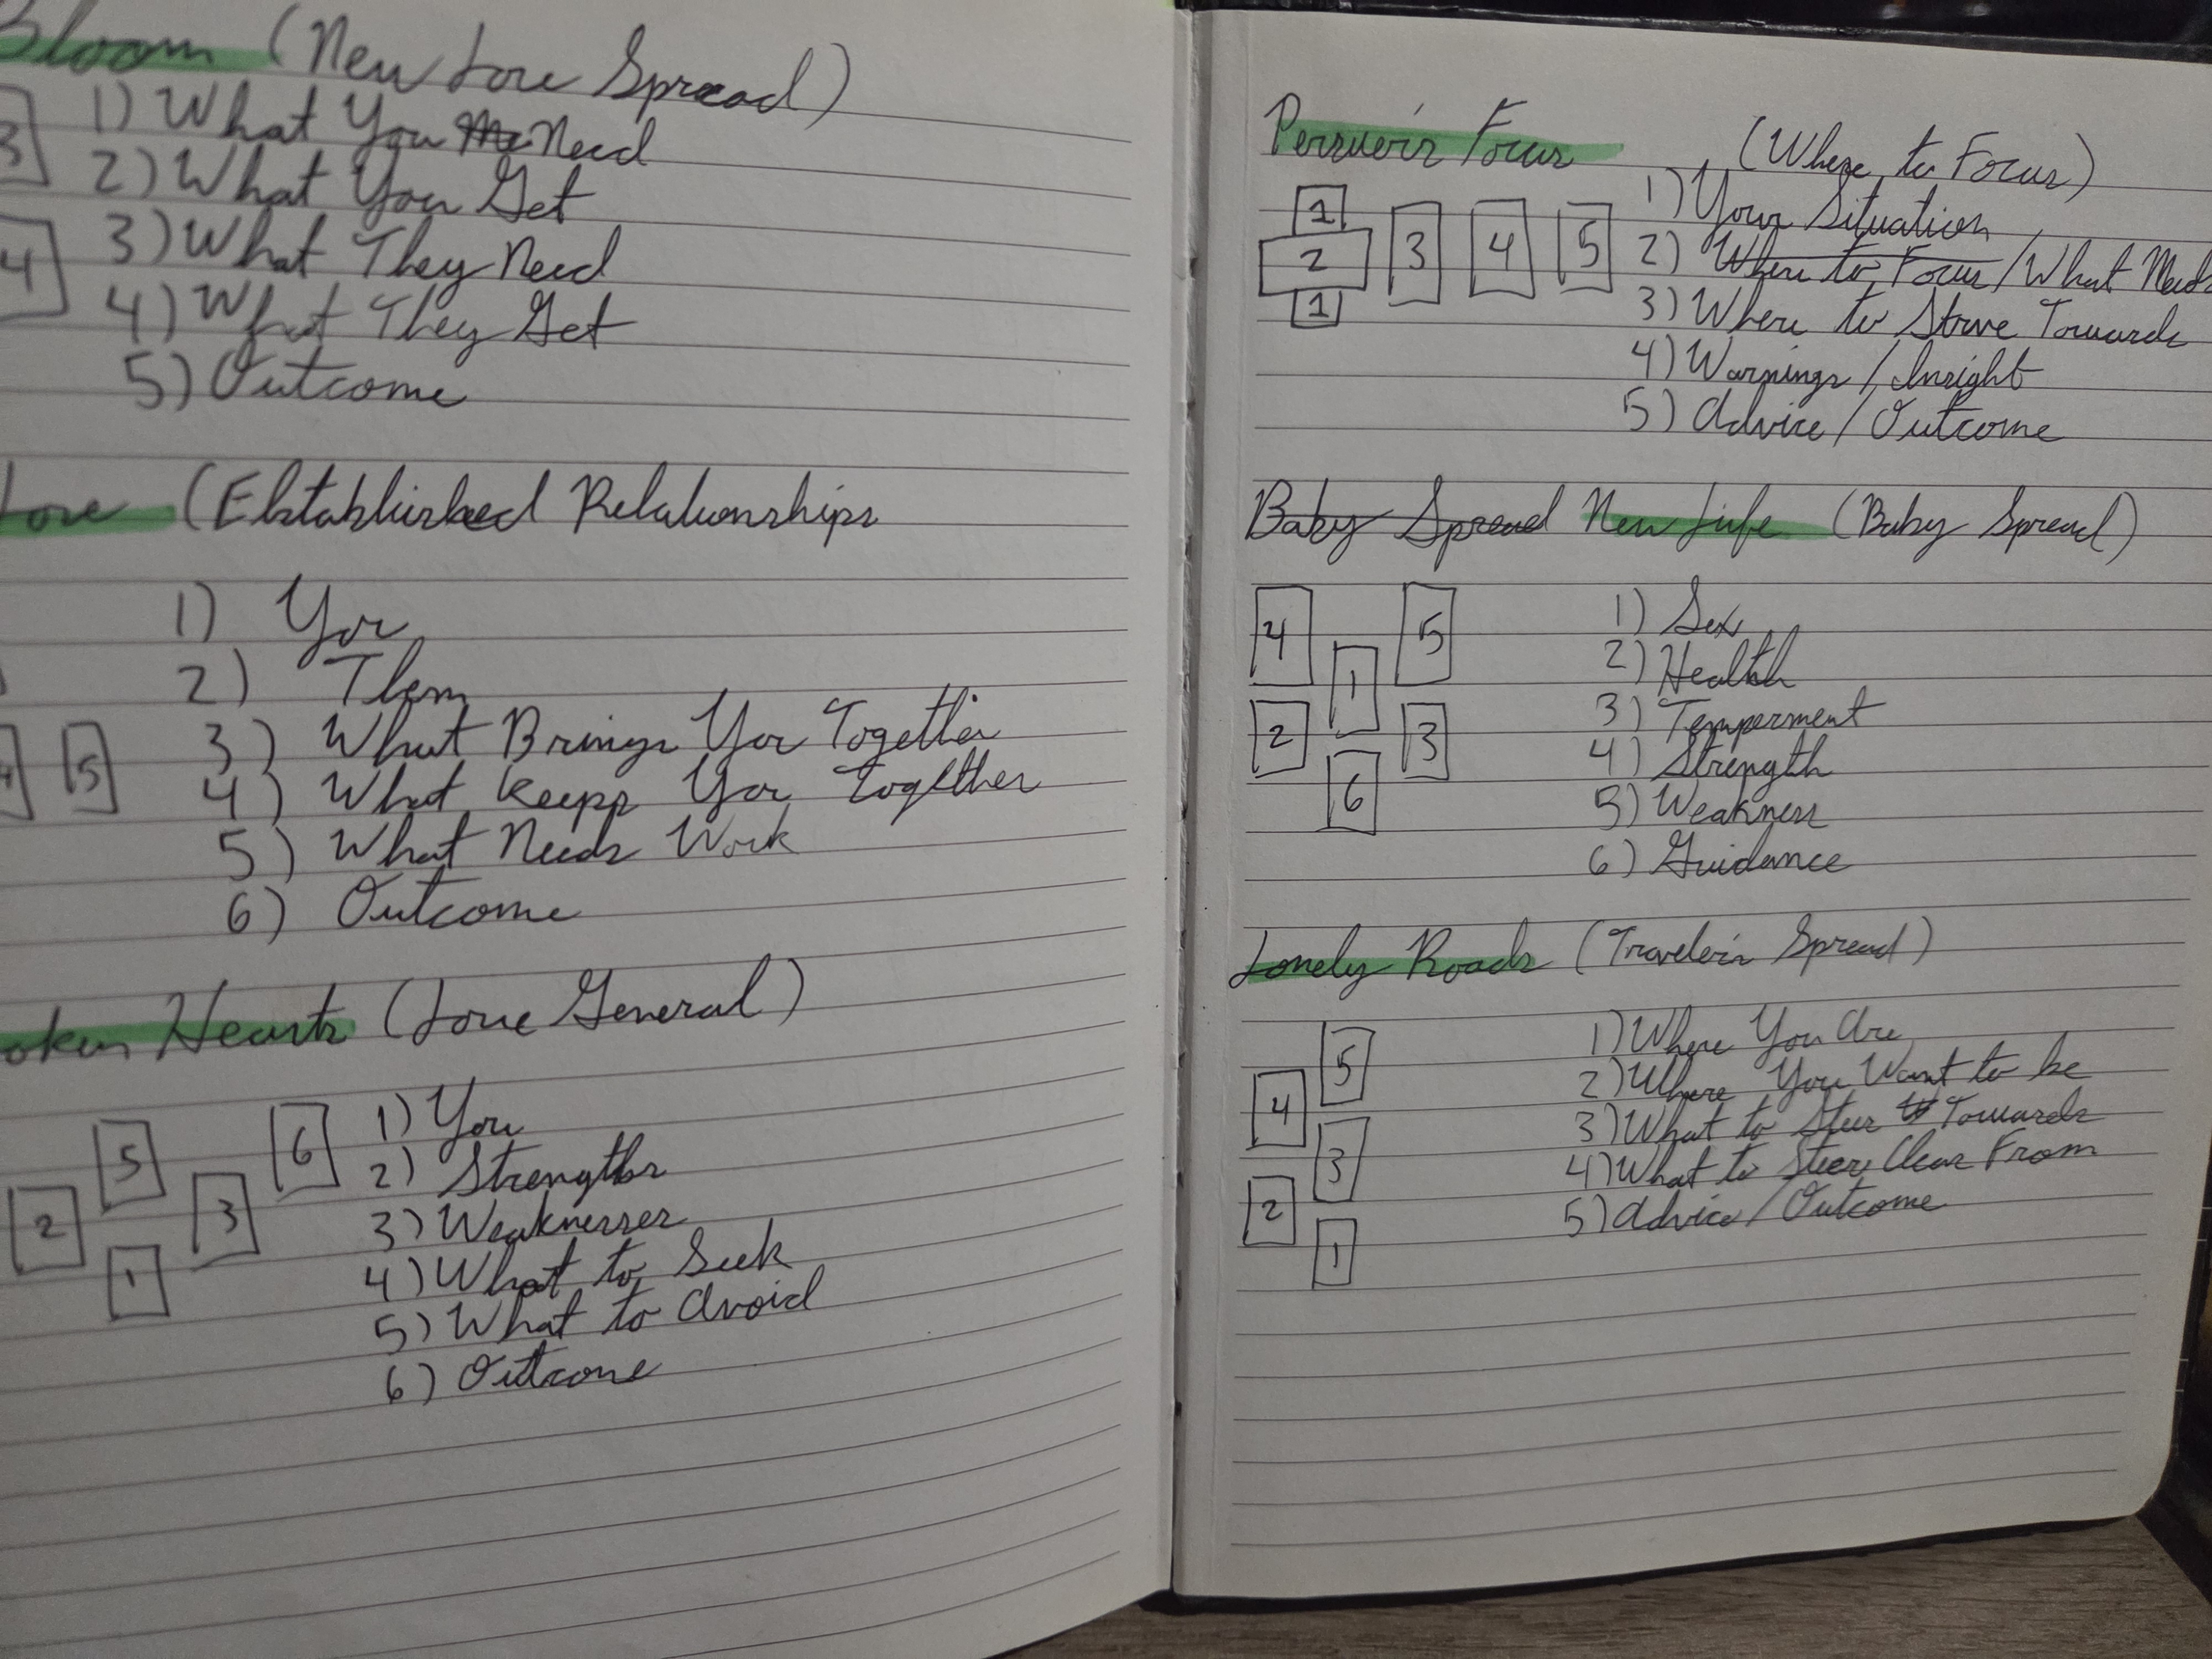 Bloom (New Love Spread)
1) What You Need
2) What You Get
3) What They Need
4) What They Get
5) Outcome
3
4
Love (Ekstablished Relationships
1) You
2) Them
3) What Brings You Together
4) What Keeps You Together
5) What Needs Work
6) Outcome
4 5
oken Hearts (Love General)
1) You
2) Strengths
3) Weaknesses
4) What to Seek
5) What to Avoid
6) Outcome
5 6
2 3
1
Focus (Where to Focus)
1) Your Situation
2) Where to Focus / What Needs
3) Where to Strive Towards
4) Warnings / Insight
5) Advice / Outcome
1
2 3 4 5
1
Baby Spread New Life (Baby Spread)
1) Sex
2) Health
3) Temperment
4) Strength
5) Weakness
6) Guidance
4 5
1
2 3
6
Lonely Roads (Traveler's Spread)
1) Where You Are
2) Where You Want to be
3) What to Steer Towards
4) What to Steer Clear From
5) Advice / Outcome
5
4
3
2
1